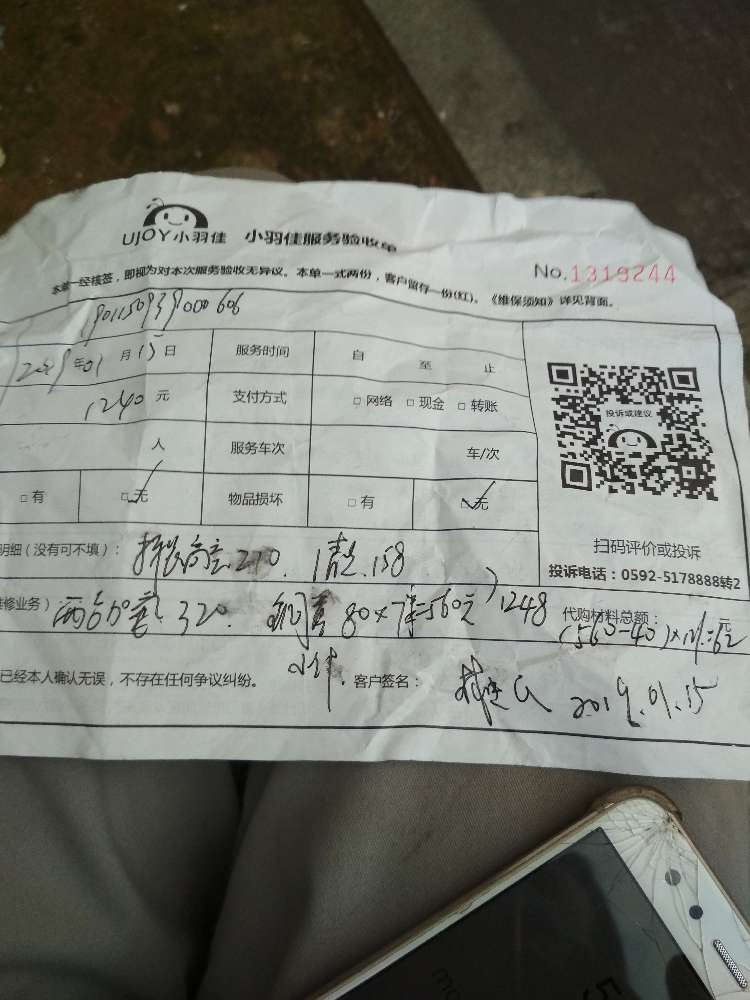 UJOY小羽佳 小羽佳服务验收单
No.1319244
本单一经核签，即视为对本次服务验收无异议。本单一式两份，客户留存一份(红)。《维保须知》详见背面。
2019年01月15日 服务时间 自 至 止
1240元 支付方式 □网络 □现金 □转账
人 服务车次 车/次
□有 □无 物品损坏 □有 □无
投诉或建议
扫码评价或投诉
投诉电话：0592-5178888转2
明细（没有可不填）： 210. 清洗.158
修业务） 两台加 320. 铜管80×7米=560元 1248 代购材料总额：
已经本人确认无误，不存在任何争议纠纷。 客户签名： 2019.01.15